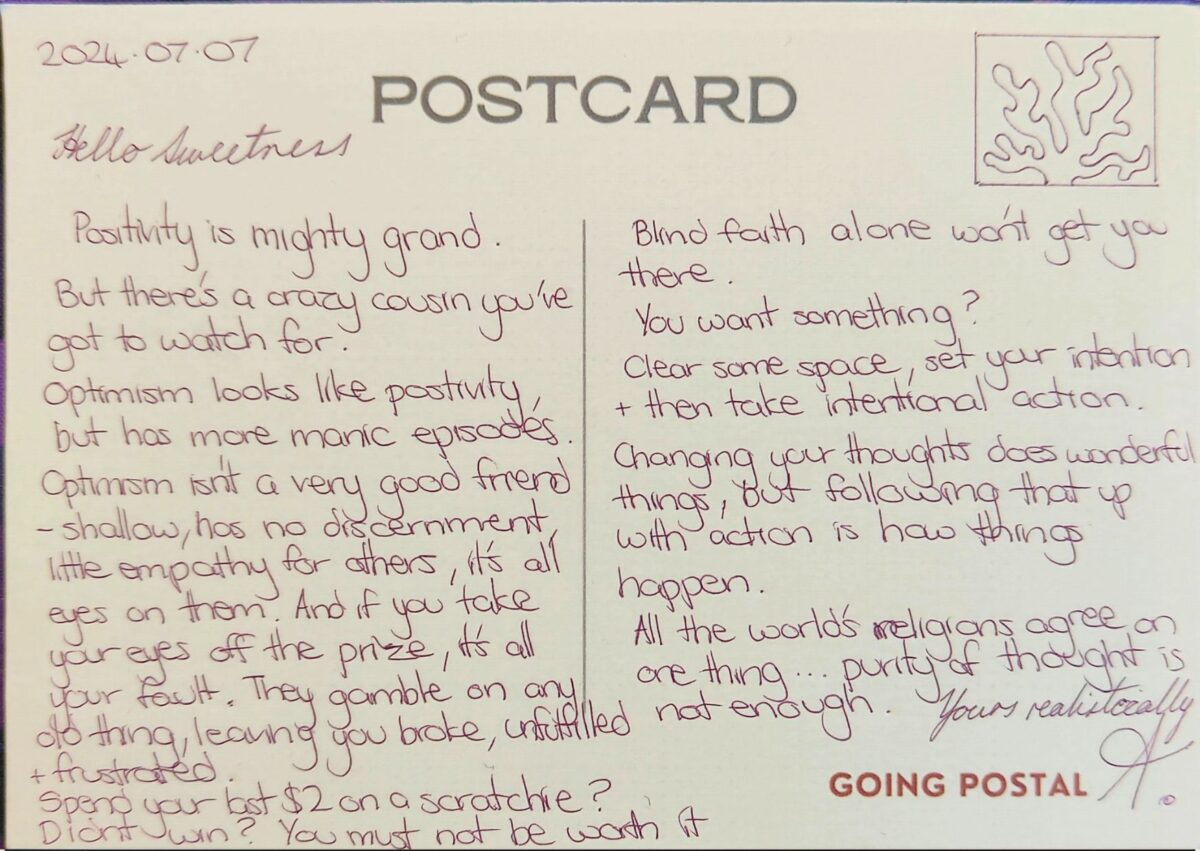 2024.07.07
POSTCARD
Hello Sweetness
Positivity is mighty grand.
But there's a crazy cousin you've
got to watch for.
Optimism looks like postivity,
but has more manic episodes.
Optimism isn't a very good friend
- shallow, has no discernment,
little empathy for others, it's all
eyes on them. And if you take
your eyes off the prize, it's all
your fault. They gamble on any
old thing, leaving you broke, unfulfilled
+ frustrated.
Spend your last $2 on a scratchie?
Didn't win? You must not be worth it
Blind faith alone won't get you
there.
You want something?
Clear some space, set your intention
+ then take intentional action.
Changing your thoughts does wonderful
things, but following that up
with action is how things
happen.
All the world's religions agree on
one thing... purity of thought is
not enough.
Yours realistically
A.
GOING POSTAL